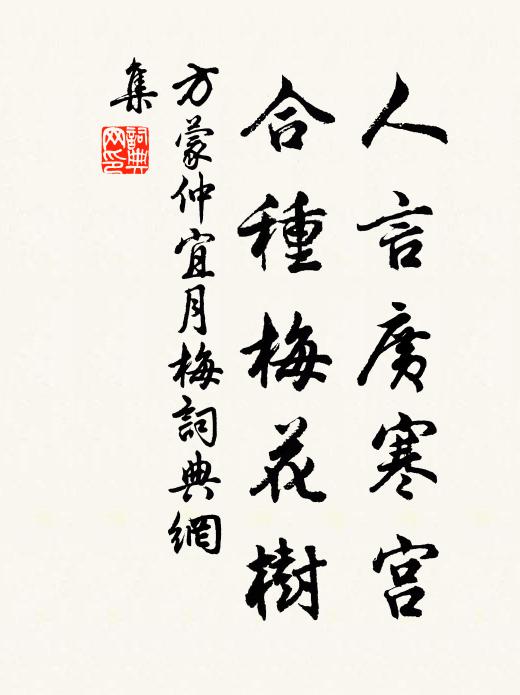 人言廣寒宮
合種梅花樹
方蒙仲宜月梅詞典網
集
詞典网印